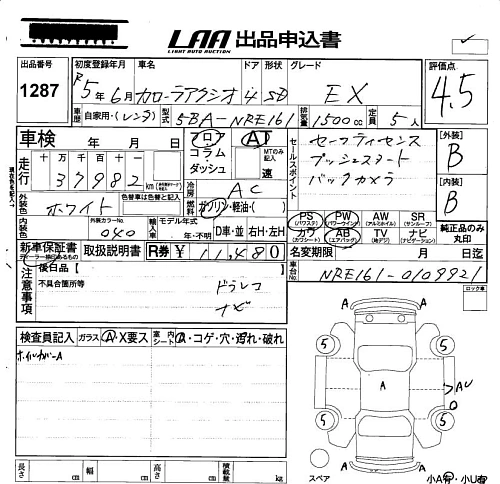 LAA 出品申込書
LIGHT AUTO AUCTION
出品番号 初度登録年月 車名 ドア 形状 グレード 評価点
1287 R5年6月 カローラアクシオ 4 SD EX 4.5
車歴 自家用・(レンタ) 型式 5BA-NRE161 排気量 1500cc 定員 5人
車検 年 月 日 フロア AT セールスポイント セーフティセンス [外装]
コラム MTのみ記入 プッシュスタート B
走行 十万千百十一 ダッシュ 速 バックカメラ
37982 km 冷房 AC [内装]
外装色 ホワイト 色替車は色替と記入 燃料 ガソリン・軽油・( ) B
内装色 外装カラーNo. 040 輸入車 モデル年式 年、不明 D車・並 右H・左H
PS (パワステ) PW (パワーウインド) AW (アルミホイル) SR (サンルーフ) 純正品のみ丸印
カワ (カワシート) AB (エアバッグ) TV (地デジ) ナビ (ナビゲーション)
新車保証書 取扱説明書 R券 ¥ 11,480 名変期限 月 日迄
ディーラー捺印あるもの
注意事項 後日品 [ ] 車台No. NRE161-0109921
不具合箇所等 ドラレコ
ナビ
ロック車
検査員記入 ガラス A・X要ス 室内シート A・コゲ・穴・汚れ・破れ
ホイルカバーA
A
5 5
A A A U
5 5
A
スペア 小A有・小U有
長さ 幅 高さ 積載量
cm cm cm kg